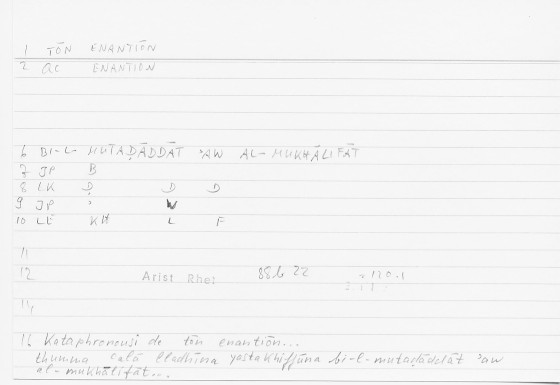 1 TŌN ENANTIŌN
2 QC ENANTION
6 BI-L- MUTAḌĀDDĀT ʾAW AL-MUKHĀLIFĀT
7 JP B
8 LK Ḍ D D
9 JP ʾ W
10 LE KH L F
11
12 Arist Rhet 88b 22
14
16 Kataphronousi de tōn enantiōn...
thumma ʿalā lladhīna yastakhiffūna bi-l-mutaḍāddāt ʾaw
al-mukhālifāt...